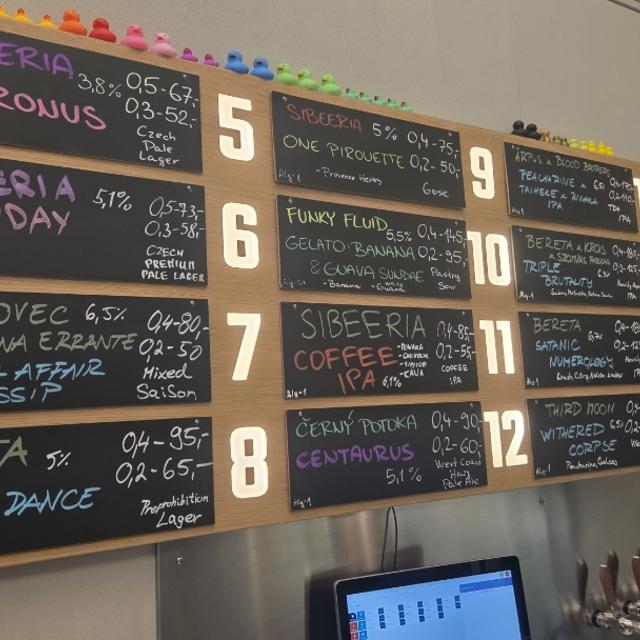 ERIA
3,8% 0,5-67,-
RONUS 0,3-52,-
Czech
Pale
Lager
ERIA 5,1% 0,5-73,-
DAY 0,3-58,-
CZECH
PREMIUM
PALE LAGER
OVEC 6,5% 0,4-80,-
NA ERRANTE 0,2-50
AFFAIR Mixed
SSIP Saison
TA 5% 0,4-95,-
0,2-65,-
DANCE Preprohibition
Lager
5
SIBEERIA 5% 0,4-75,-
ONE PIROUETTE 0,2-50,-
Alg·1 Gose
6
FUNKY FLUID 5,5% 0,4-145,-
GELATO: BANANA 0,2-95,-
& GUAVA SUNDAE Pastry
-Banana -Guava Sour
7
SIBEERIA 0,4-85,-
COFFEE 0,2-55,-
IPA 6,1% COFFEE
Alg·1 IPA
8
ČERNÝ POTOKA 0,4-90,-
CENTAURUS 0,2-60,-
5,1% West Coast
Hazy
Alg·1 Pale Ale
9
ÁRPUS & BLOOD BROTHERS
PEACHARINE x
TAIHEKE x RIWAKA
IPA
10
BERETA & KROS
TRIPLE
BRUTALITY
11
BERETA
SATANIC
NUMEROLOGY
12
THIRD MOON
WITHERED
CORPSE